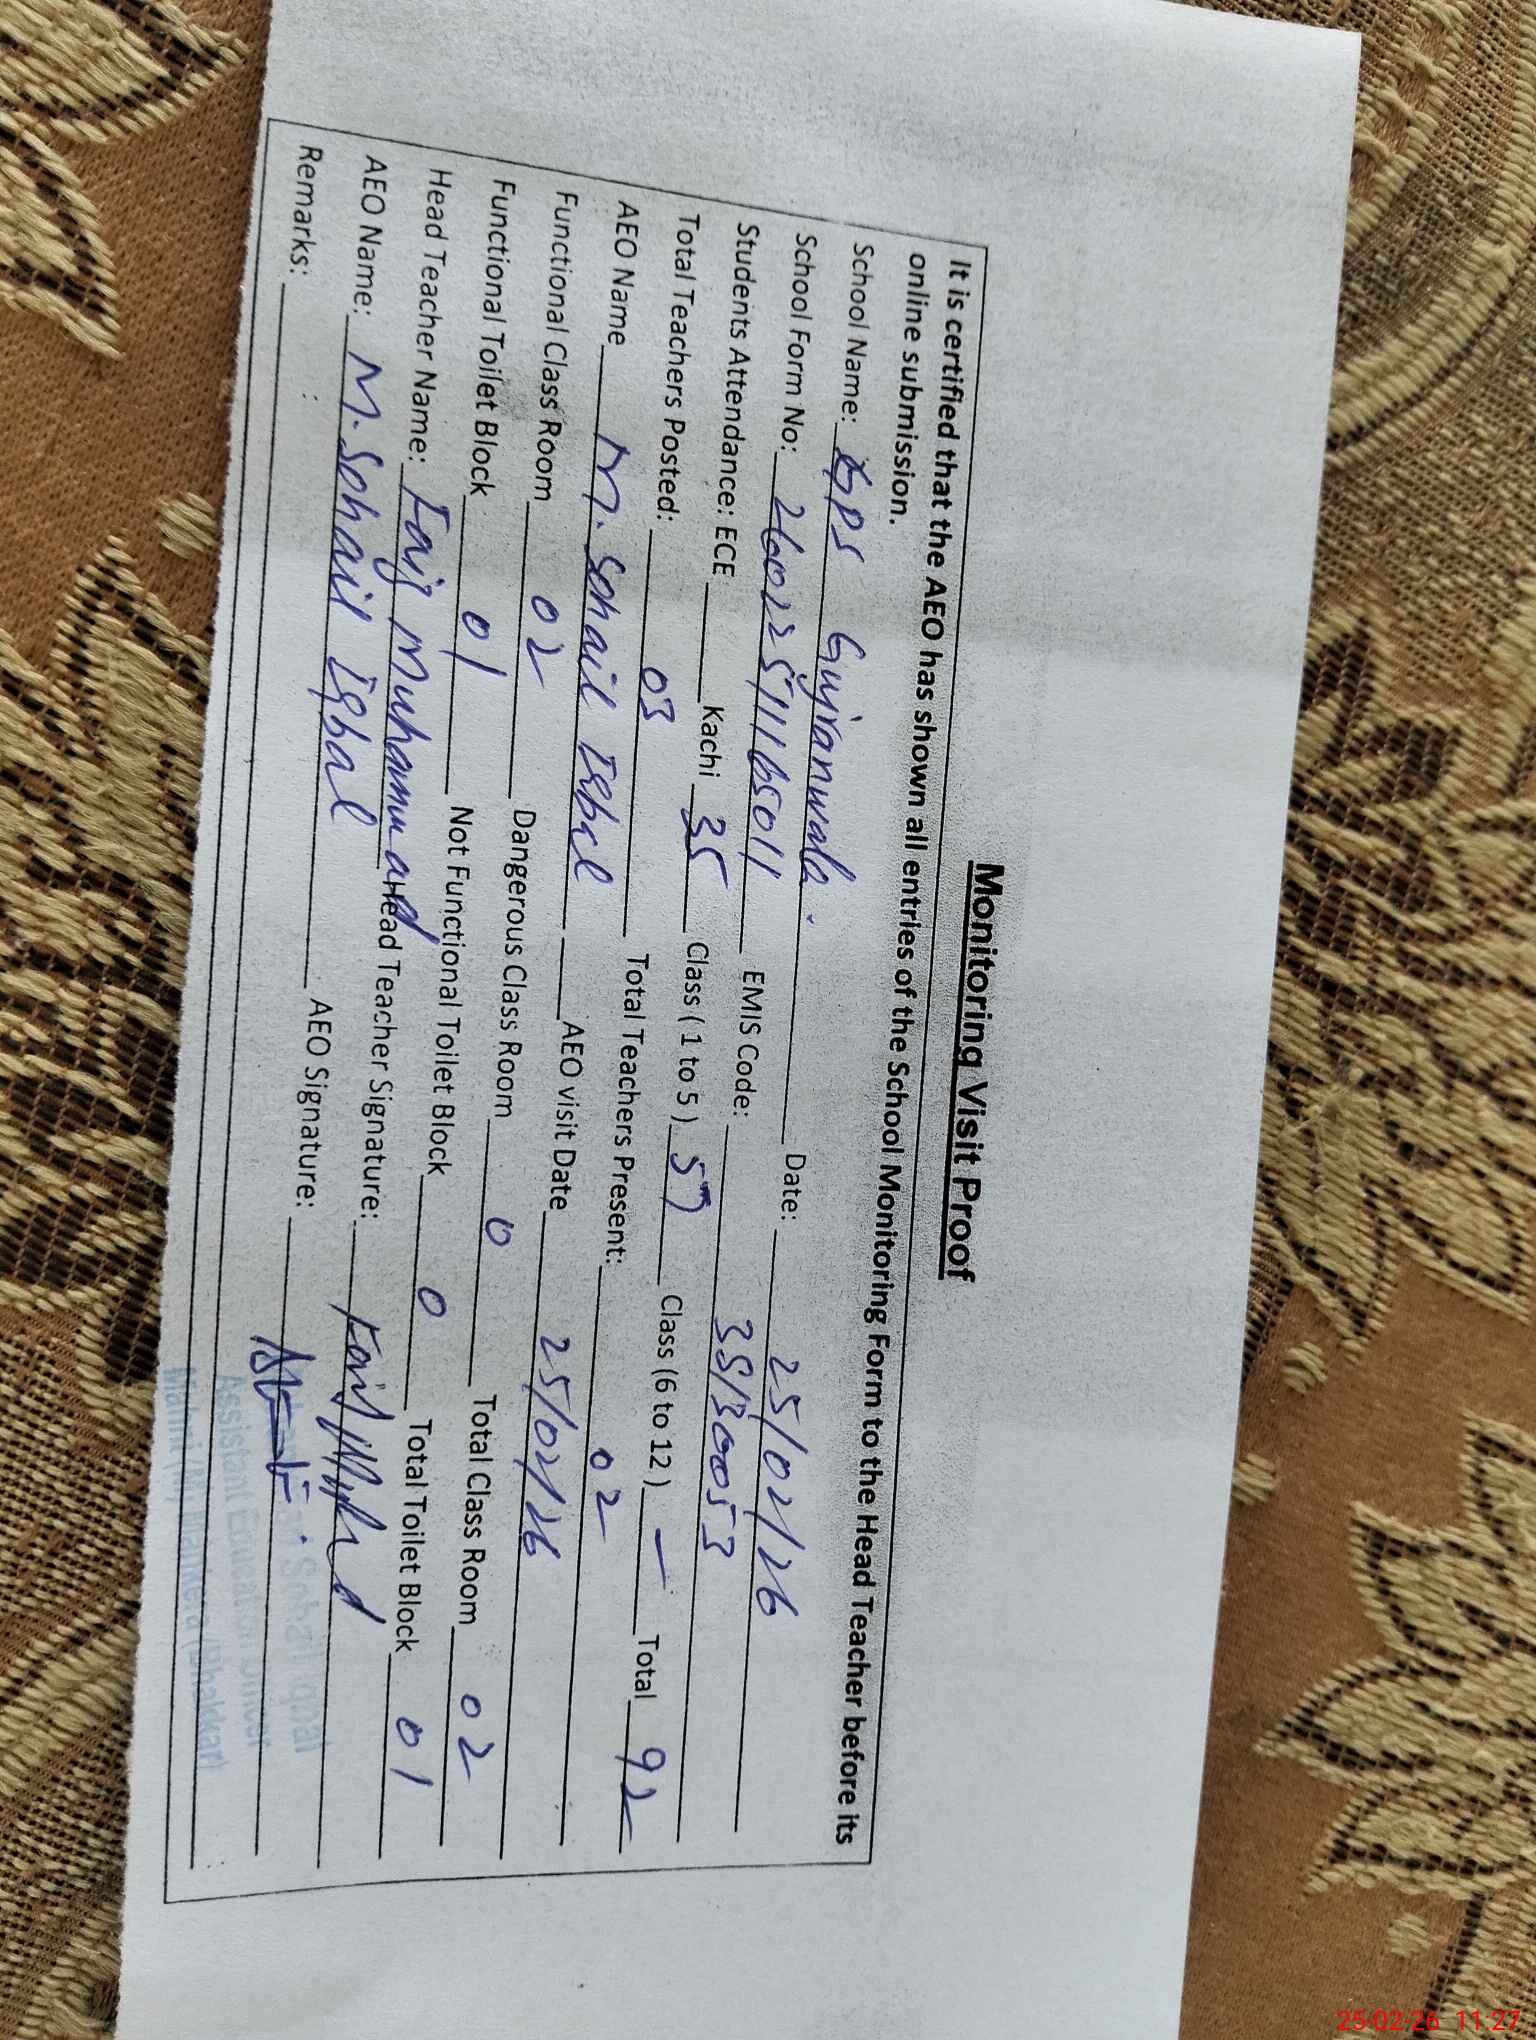 Monitoring Visit Proof
It is certified that the AEO has shown all entries of the School Monitoring Form to the Head Teacher before its
online submission.
School Name: GPS Gujranwala. Date: 25/02/26
School Form No: 26022511165011 EMIS Code: 38130053
Students Attendance: ECE Kachi 35 Class ( 1 to 5 ) 57 Class (6 to 12 ) — Total 92
Total Teachers Posted: 03 Total Teachers Present: 02
AEO Name M. Sohail Iqbal AEO visit Date 25/02/26
Functional Class Room 02 Dangerous Class Room 0 Total Class Room 02
Functional Toilet Block 01 Not Functional Toilet Block 0 Total Toilet Block 01
Head Teacher Name: Faiz Muhammad Head Teacher Signature:
AEO Name: M. Sohail Iqbal AEO Signature:
Remarks:
Sohail Iqbal
Assistant Education Officer
Mankera (Bhakkar)
25-02-26 11:27